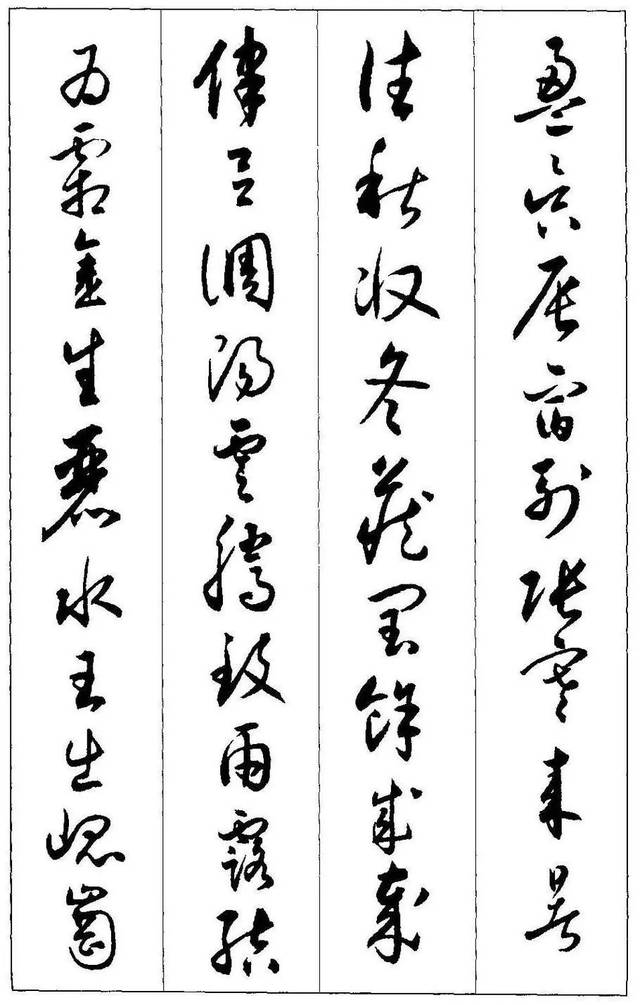 盈昃辰宿列張寒來暑
往秋收冬藏閏餘成歲
律呂調陽雲騰致雨露結
為霜金生麗水玉出崐崗